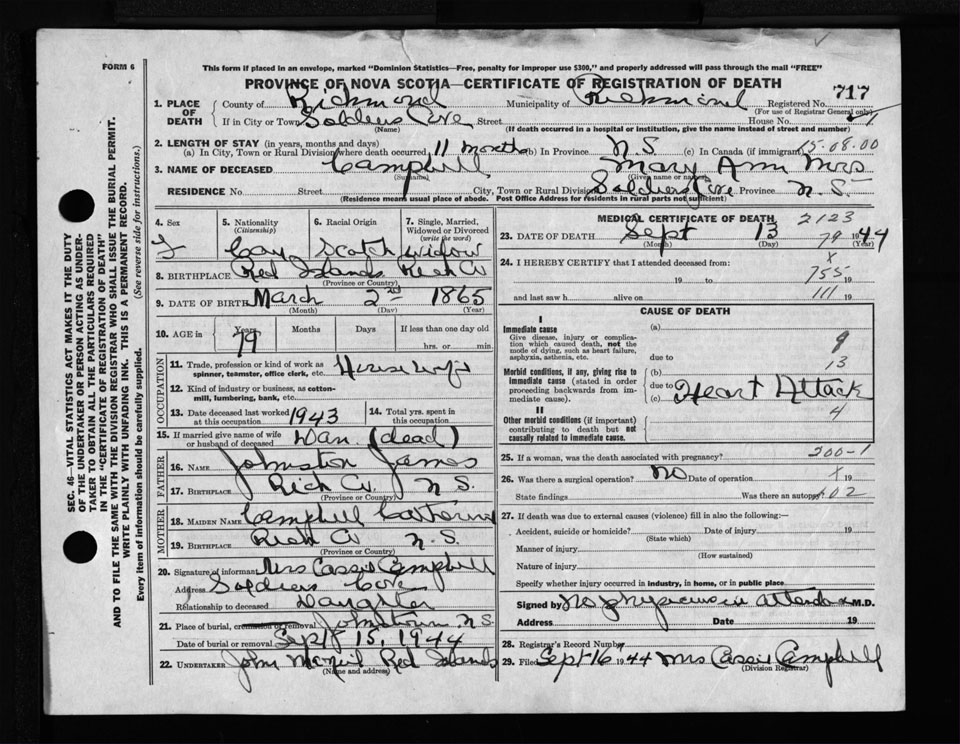 FORM 6
This form if placed in an envelope, marked "Dominion Statistics—Free, penalty for improper use $300," and properly addressed will pass through the mail "FREE"
PROVINCE OF NOVA SCOTIA—CERTIFICATE OF REGISTRATION OF DEATH
717
1. PLACE OF DEATH County of Richmond Municipality of Richmond Registered No.
(For use of Registrar General only)
If in City or Town Soldiers Cove Street House No.
(Name) (If death occurred in a hospital or institution, give the name instead of street and number)
2. LENGTH OF STAY (in years, months and days)
(a) In City, Town or Rural Division where death occurred 11 months (b) In Province N.S. (c) In Canada (if immigrant) 15-08-00
3. NAME OF DECEASED Campbell Mary Ann Mrs
(Surname) (Given name or names)
RESIDENCE No. Street City, Town or Rural Division Soldiers Cove Province N.S.
(Residence means usual place of abode. Post Office Address for residents in rural parts not sufficient)
4. Sex 5. Nationality (Citizenship) 6. Racial Origin 7. Single, Married, Widowed or Divorced (write the word)
F Can Scotch widow
8. BIRTHPLACE Red Islands Rich Co
(Province or Country)
9. DATE OF BIRTH March 2nd 1865
(Month) (Day) (Year)
10. AGE in Years Months Days If less than one day old
79 hrs. or min.
OCCUPATION
11. Trade, profession or kind of work as spinner, teamster, office clerk, etc. Housewife
12. Kind of industry or business, as cotton-mill, lumbering, bank, etc.
13. Date deceased last worked at this occupation 1943 14. Total yrs. spent in this occupation
15. If married give name of wife or husband of deceased Dan (dead)
FATHER
16. NAME Johnston James
17. BIRTHPLACE Rich Co. N.S.
(Province or Country)
MOTHER
18. MAIDEN NAME Campbell Catherine
19. BIRTHPLACE Rich Co N.S.
(Province or Country)
20. Signature of informant Mrs Cassie Campbell
Address Soldiers Cove
Relationship to deceased Daughter
21. Place of burial, cremation or removal Johnstown N.S.
Date of burial or removal Sept 15, 1944
22. UNDERTAKER John McNeil Red Islands
(Name and address)
MEDICAL CERTIFICATE OF DEATH 2123
23. DATE OF DEATH Sept 13 79 1944
(Month) (Day) (Year)
24. I HEREBY CERTIFY that I attended deceased from: x
19 to 755 19
and last saw h alive on 111 19
CAUSE OF DEATH
I
Immediate cause (a)
Give disease, injury or complication which caused death, not the mode of dying, such as heart failure, asphyxia, asthenia, etc. due to 9
13
Morbid conditions, if any, giving rise to immediate cause (stated in order proceeding backwards from immediate). (b)
due to
(c) Heart Attack
II 4
Other morbid conditions (if important) contributing to death but not causally related to immediate cause.
25. If a woman, was the death associated with pregnancy? 200-1
26. Was there a surgical operation? No Date of operation x 19
State findings Was there an autopsy? 02
27. If death was due to external causes (violence) fill in also the following:—
Accident, suicide or homicide? Date of injury 19
(State which)
Manner of injury
(How sustained)
Nature of injury
Specify whether injury occurred in industry, in home, or in public place
Signed by No physician in attendance M.D.
Address Date 19
28. Registrar's Record Number
29. Filed Sept 16 1944 Mrs Cassie Campbell
(Division Registrar)
SEC. 46—VITAL STATISTICS ACT MAKES IT THE DUTY
OF THE UNDERTAKER OR PERSON ACTING AS UNDER-
TAKER TO OBTAIN ALL THE PARTICULARS REQUIRED
IN THE "CERTIFICATE OF REGISTRATION OF DEATH"
AND TO FILE THE SAME WITH THE DIVISION REGISTRAR WHO SHALL ISSUE THE BURIAL PERMIT.
WRITE PLAINLY WITH UNFADING INK. THIS IS A PERMANENT RECORD.
Every item of information should be carefully supplied. (See reverse side for instructions.)